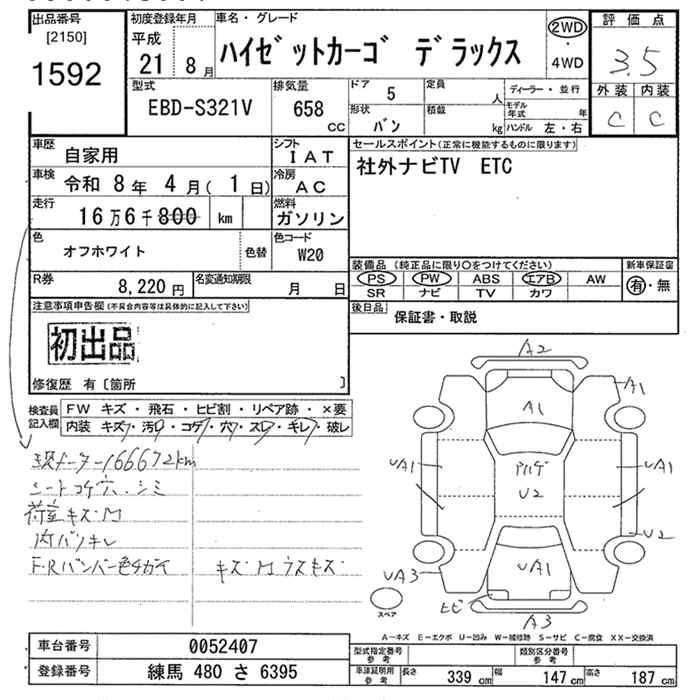 出品番号
[2150]
1592
初度登録年月
平成
21 8 月
車名・グレード
ハイゼットカーゴ デラックス
2WD
・
4WD
評価点
3.5
外装 内装
C C
型式
EBD-S321V
排気量
658
CC
ドア
5
定員
人
形状
バン
積載
kg
ディーラー・並行
モデル年式 年
ハンドル 左・右
車歴
自家用
シフト
IAT
車検
令和 8年 4月( 1日)
冷房
AC
走行
16万6千800 km
燃料
ガソリン
色
オフホワイト
色替
色コード
W20
R券
8,220円
名変通知期限
月 日
セールスポイント(正常に機能するものに限ります)
社外ナビTV ETC
装備品 (純正品に限り○をつけてください)
PS PW ABS エアB AW
SR ナビ TV カワ
新車保証書
有・無
後日品
保証書・取説
注意事項申告欄(不具合内容等は具体的に記入して下さい)
初出品
修復歴 有〔箇所 〕
検査員
記入欄
FW キズ・飛石・ヒビ割・リペア跡・×要
内装 キズ・汚レ・コゲ・穴・スレ・キレ・破レ
現メーター166672km
シートコゲ穴、シミ
荷室キズ・凹
内バリキレ
F.Rバンパー色チガイ
キズ凹ウスキズ
A2
A1
A1
UA1
アルゲ
U2
UA1
U2
UA3
UA1
ヒビ
A3
スペア
A-キズ E-エクボ U-凹み W-補修跡 S-サビ C-腐食 XX-交換済
車台番号
0052407
登録番号
練馬 480 さ 6395
型式指定番号
参考
類別区分番号
参考
車庫証明用
参考
長さ
339 cm
幅
147 cm
高さ
187 cm